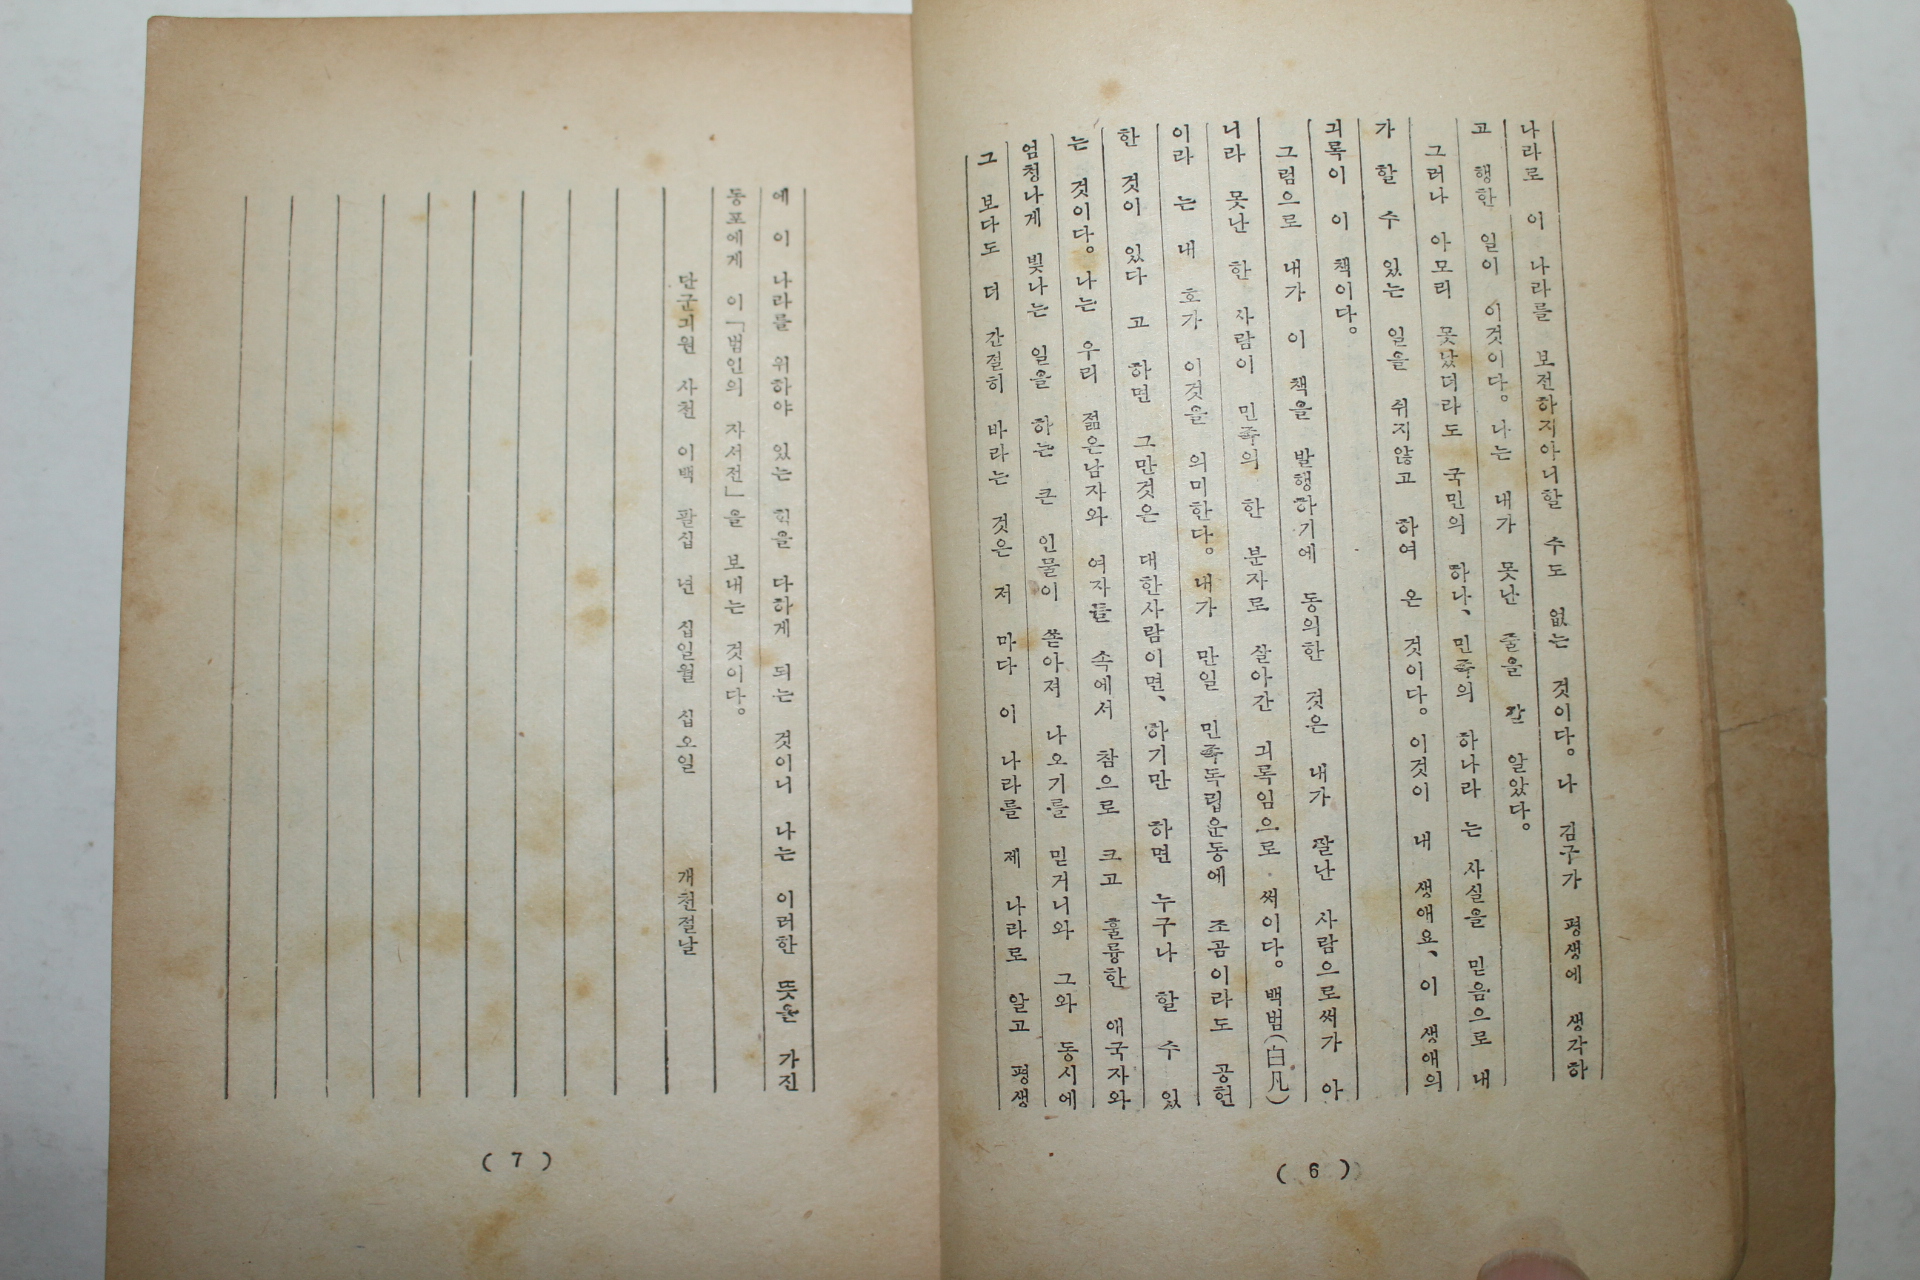 나라로 이 나라를 보전하지아니할 수도 없는 것이다。 나 김구가 평생에 생각하
고 행한 일이 이것이다。 나는 내가 못난 줄을 잘 알았다。
그러나 아모리 못났더라도 국민의 하나、 민족의 하나라 는 사실을 믿음으로 내
가 할 수 있는 일을 쉬지않고 하여 온 것이다。 이것이 내 생애요、 이 생애의
긔록이 이 책이다。
그럼으로 내가 이 책을 발행하기에 동의한 것은 내가 잘난 사람으로써가 아
니라 못난 한 사람이 민족의 한 분자로 살아간 긔록임으로 써이다。 백범(白凡)
이라 는 내 호가 이것을 의미한다。 내가 만일 민족독립운동에 조곰이라도 공헌
한 것이 있다 고 하면 그만것은 대한사람이면、 하기만 하면 누구나 할 수 있
는 것이다。 나는 우리 젊은남자와 여자들 속에서 참으로 크고 훌륭한 애국자와
엄청나게 빛나는 일을 하는 큰 인물이 쏟아져 나오기를 믿거니와 그와 동시에
그 보다도 더 간절히 바라는 것은 저 마다 이 나라를 제 나라로 알고 평생
( 6 )
에 이 나라를 위하야 있는 힘을 다하게 되는 것이니 나는 이러한 뜻을 가진
동포에게 이 「범인의 자서전」을 보내는 것이다。
단군긔원 사천 이백 팔십 년 십일월 십오일 개천절날
( 7 )